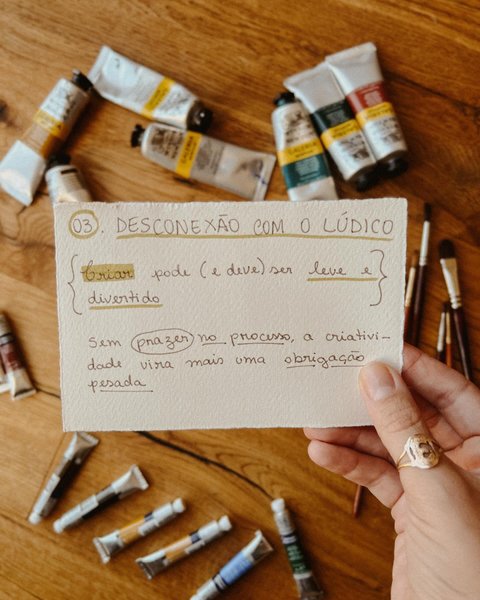 03. DESCONEXÃO COM O LÚDICO
{Criar pode (e deve) ser leve e
divertido}
Sem prazer no processo, a criativi-
dade vira mais uma obrigação
pesada
GALERIA